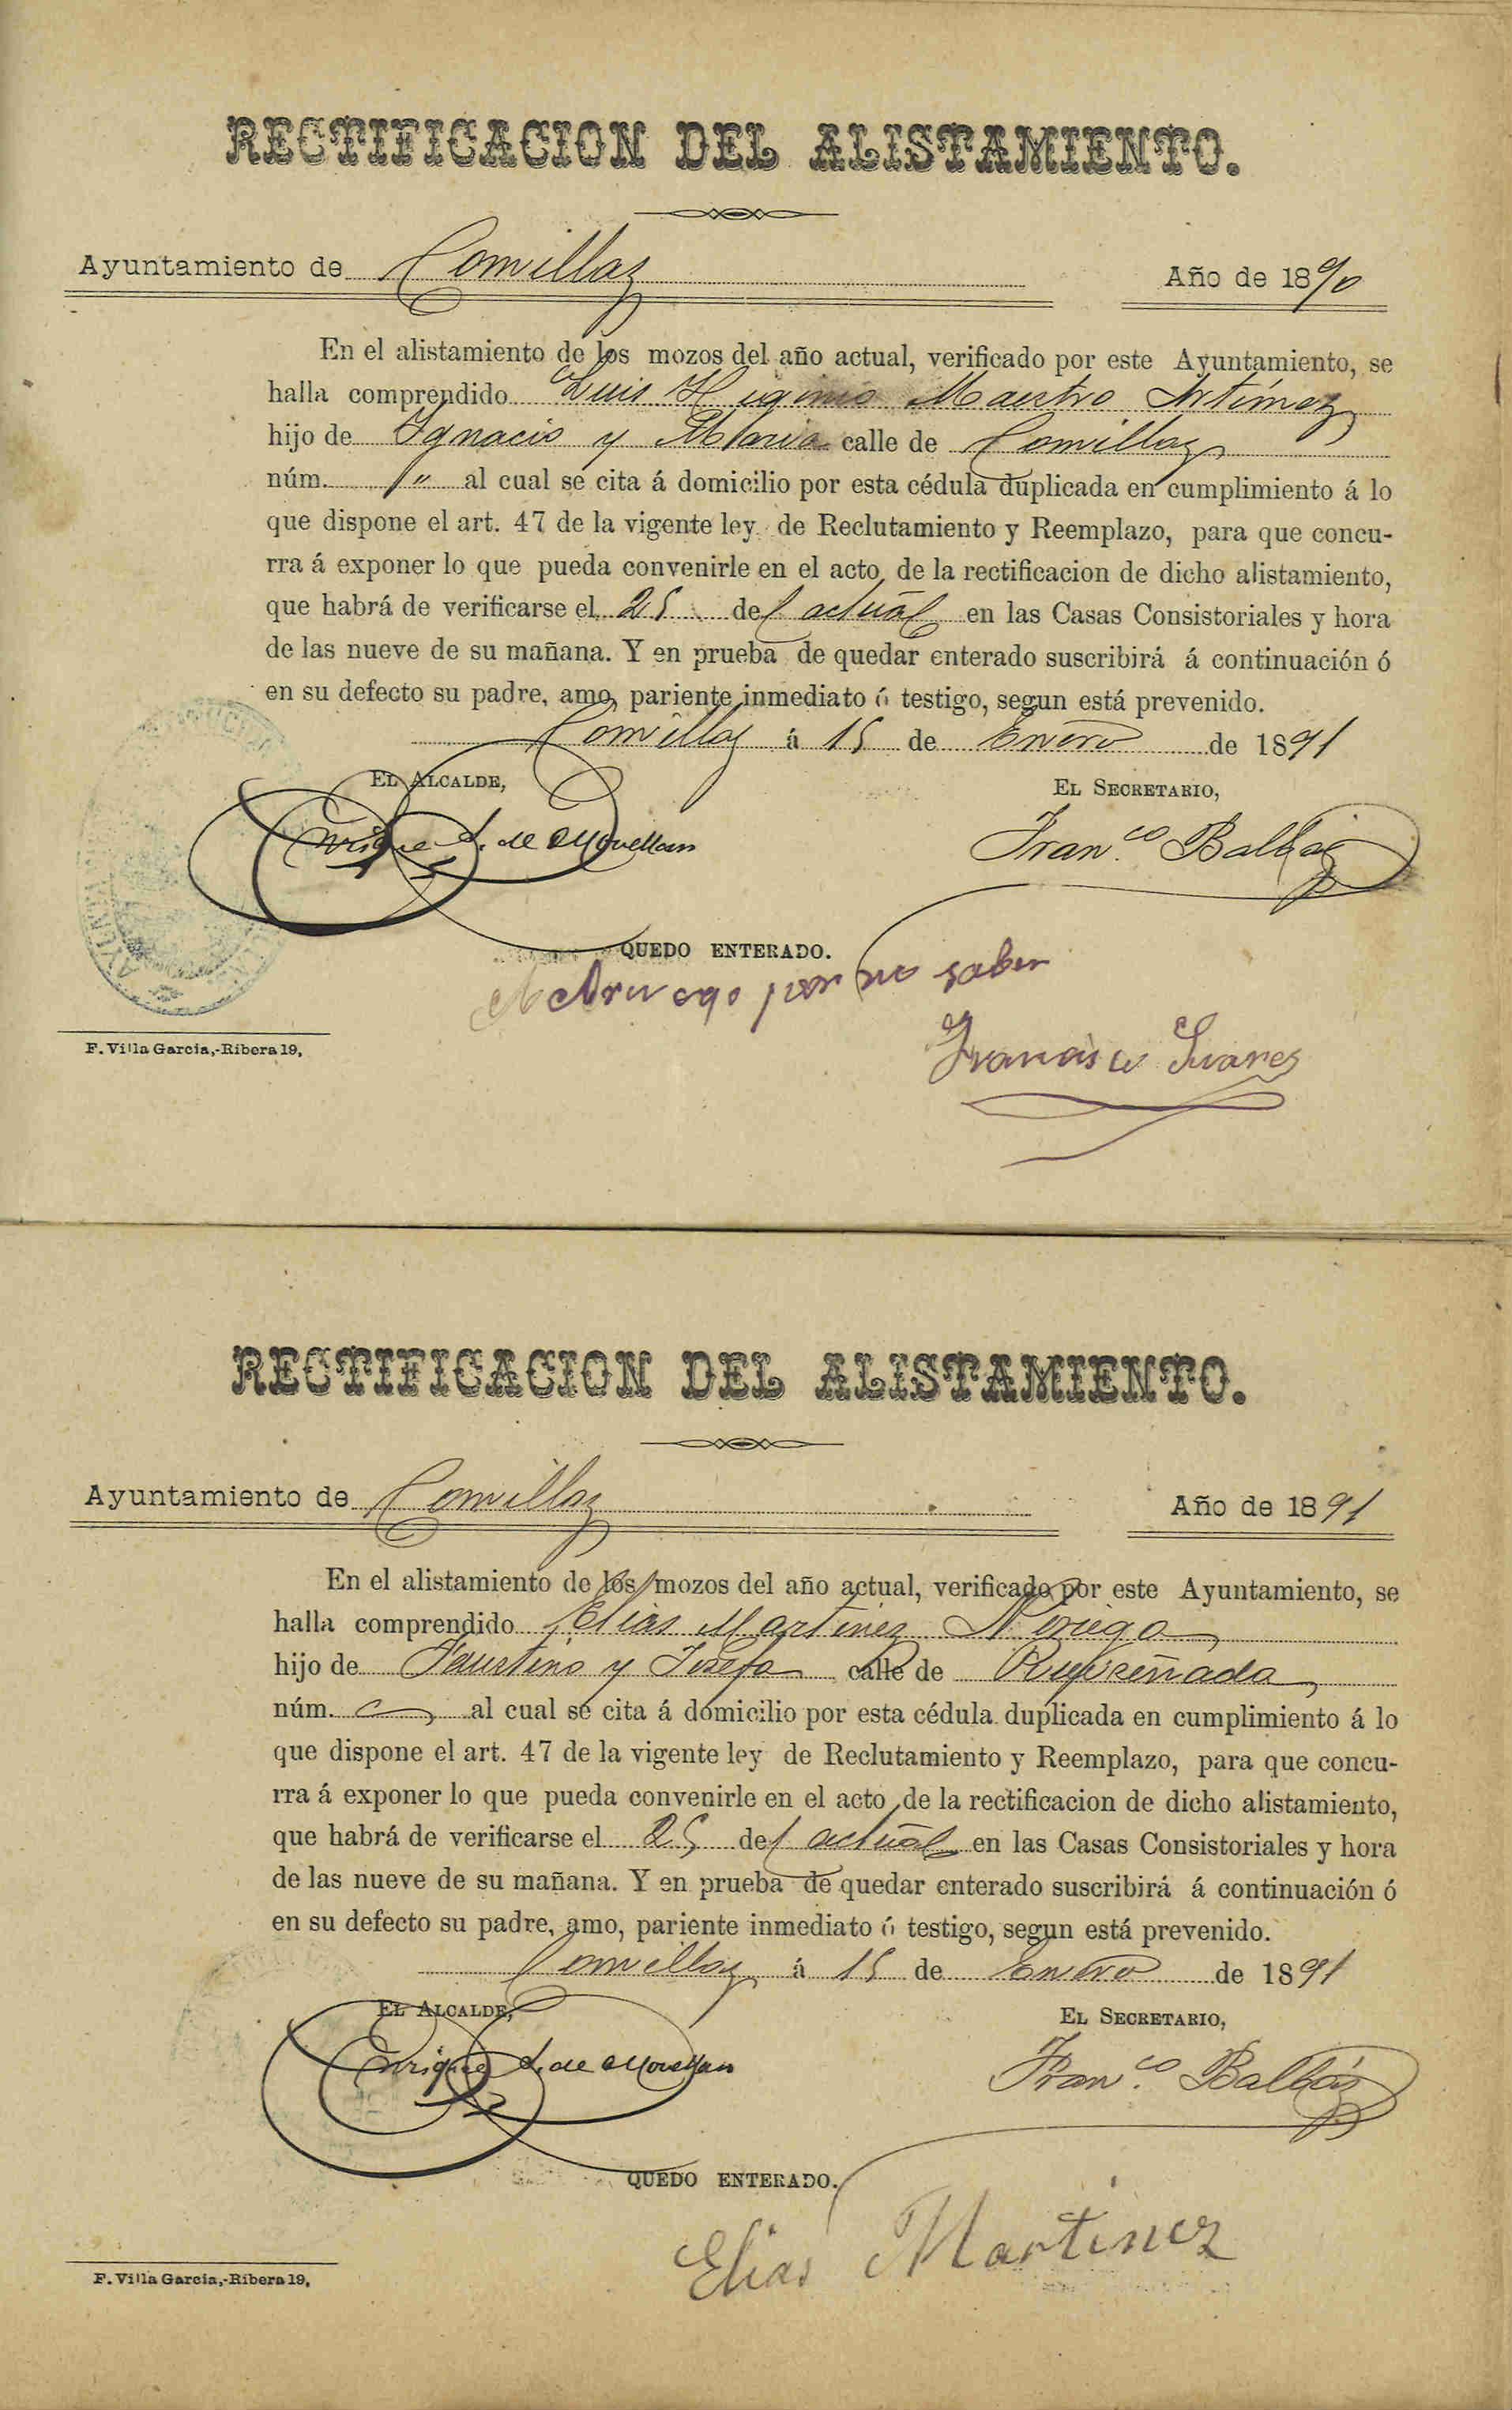 RECTIFICACION DEL ALISTAMIENTO.
Ayuntamiento de Comillas Año de 1890
En el alistamiento de los mozos del año actual, verificado por este Ayuntamiento, se
halla comprendido Luis Higinio Maestro Artímez
hijo de Ignacio y Maria calle de Comillas
núm. " al cual se cita á domicilio por esta cédula duplicada en cumplimiento á lo
que dispone el art. 47 de la vigente ley de Reclutamiento y Reemplazo, para que concu-
rra á exponer lo que pueda convenirle en el acto de la rectificacion de dicho alistamiento,
que habrá de verificarse el 25 del actual en las Casas Consistoriales y hora
de las nueve de su mañana. Y en prueba de quedar enterado suscribirá á continuación ó
en su defecto su padre, amo, pariente inmediato ó testigo, segun está prevenido.
Comillas á 15 de Enero de 1891
EL ALCALDE, EL SECRETARIO,
Enrique S. de Movellan Fran.co Balbás
QUEDO ENTERADO.
A su ruego por no saber
Francisco Suarez
F. Villa Garcia,-Ribera 19,
RECTIFICACION DEL ALISTAMIENTO.
Ayuntamiento de Comillas Año de 1891
En el alistamiento de los mozos del año actual, verificado por este Ayuntamiento, se
halla comprendido Elias Martinez Noriega
hijo de Faustino y Josefa calle de Ruiseñada
núm. al cual se cita á domicilio por esta cédula duplicada en cumplimiento á lo
que dispone el art. 47 de la vigente ley de Reclutamiento y Reemplazo, para que concu-
rra á exponer lo que pueda convenirle en el acto de la rectificacion de dicho alistamiento,
que habrá de verificarse el 25 del actual en las Casas Consistoriales y hora
de las nueve de su mañana. Y en prueba de quedar enterado suscribirá á continuación ó
en su defecto su padre, amo, pariente inmediato ó testigo, segun está prevenido.
Comillas á 15 de Enero de 1891
EL ALCALDE, EL SECRETARIO,
Enrique S. de Movellan Fran.co Balbás
QUEDO ENTERADO.
Elias Martinez
F. Villa Garcia,-Ribera 19,